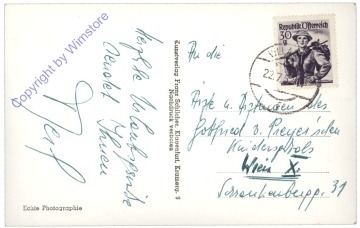 Copyright by Wimstore
Herzliche Urlaubsgrüße
sendet Ihnen
Kunstverlag Franz Schilcher, Klagenfurt, Kramerg. 9
Nachdruck verboten
Republik Österreich
30 g
22.7
An die
Ärzte u. Schwestern des
Gottfried von Preyer'schen
Kinderspitals
Wien X.
Schrankenbergg. 31
Echte Photographie